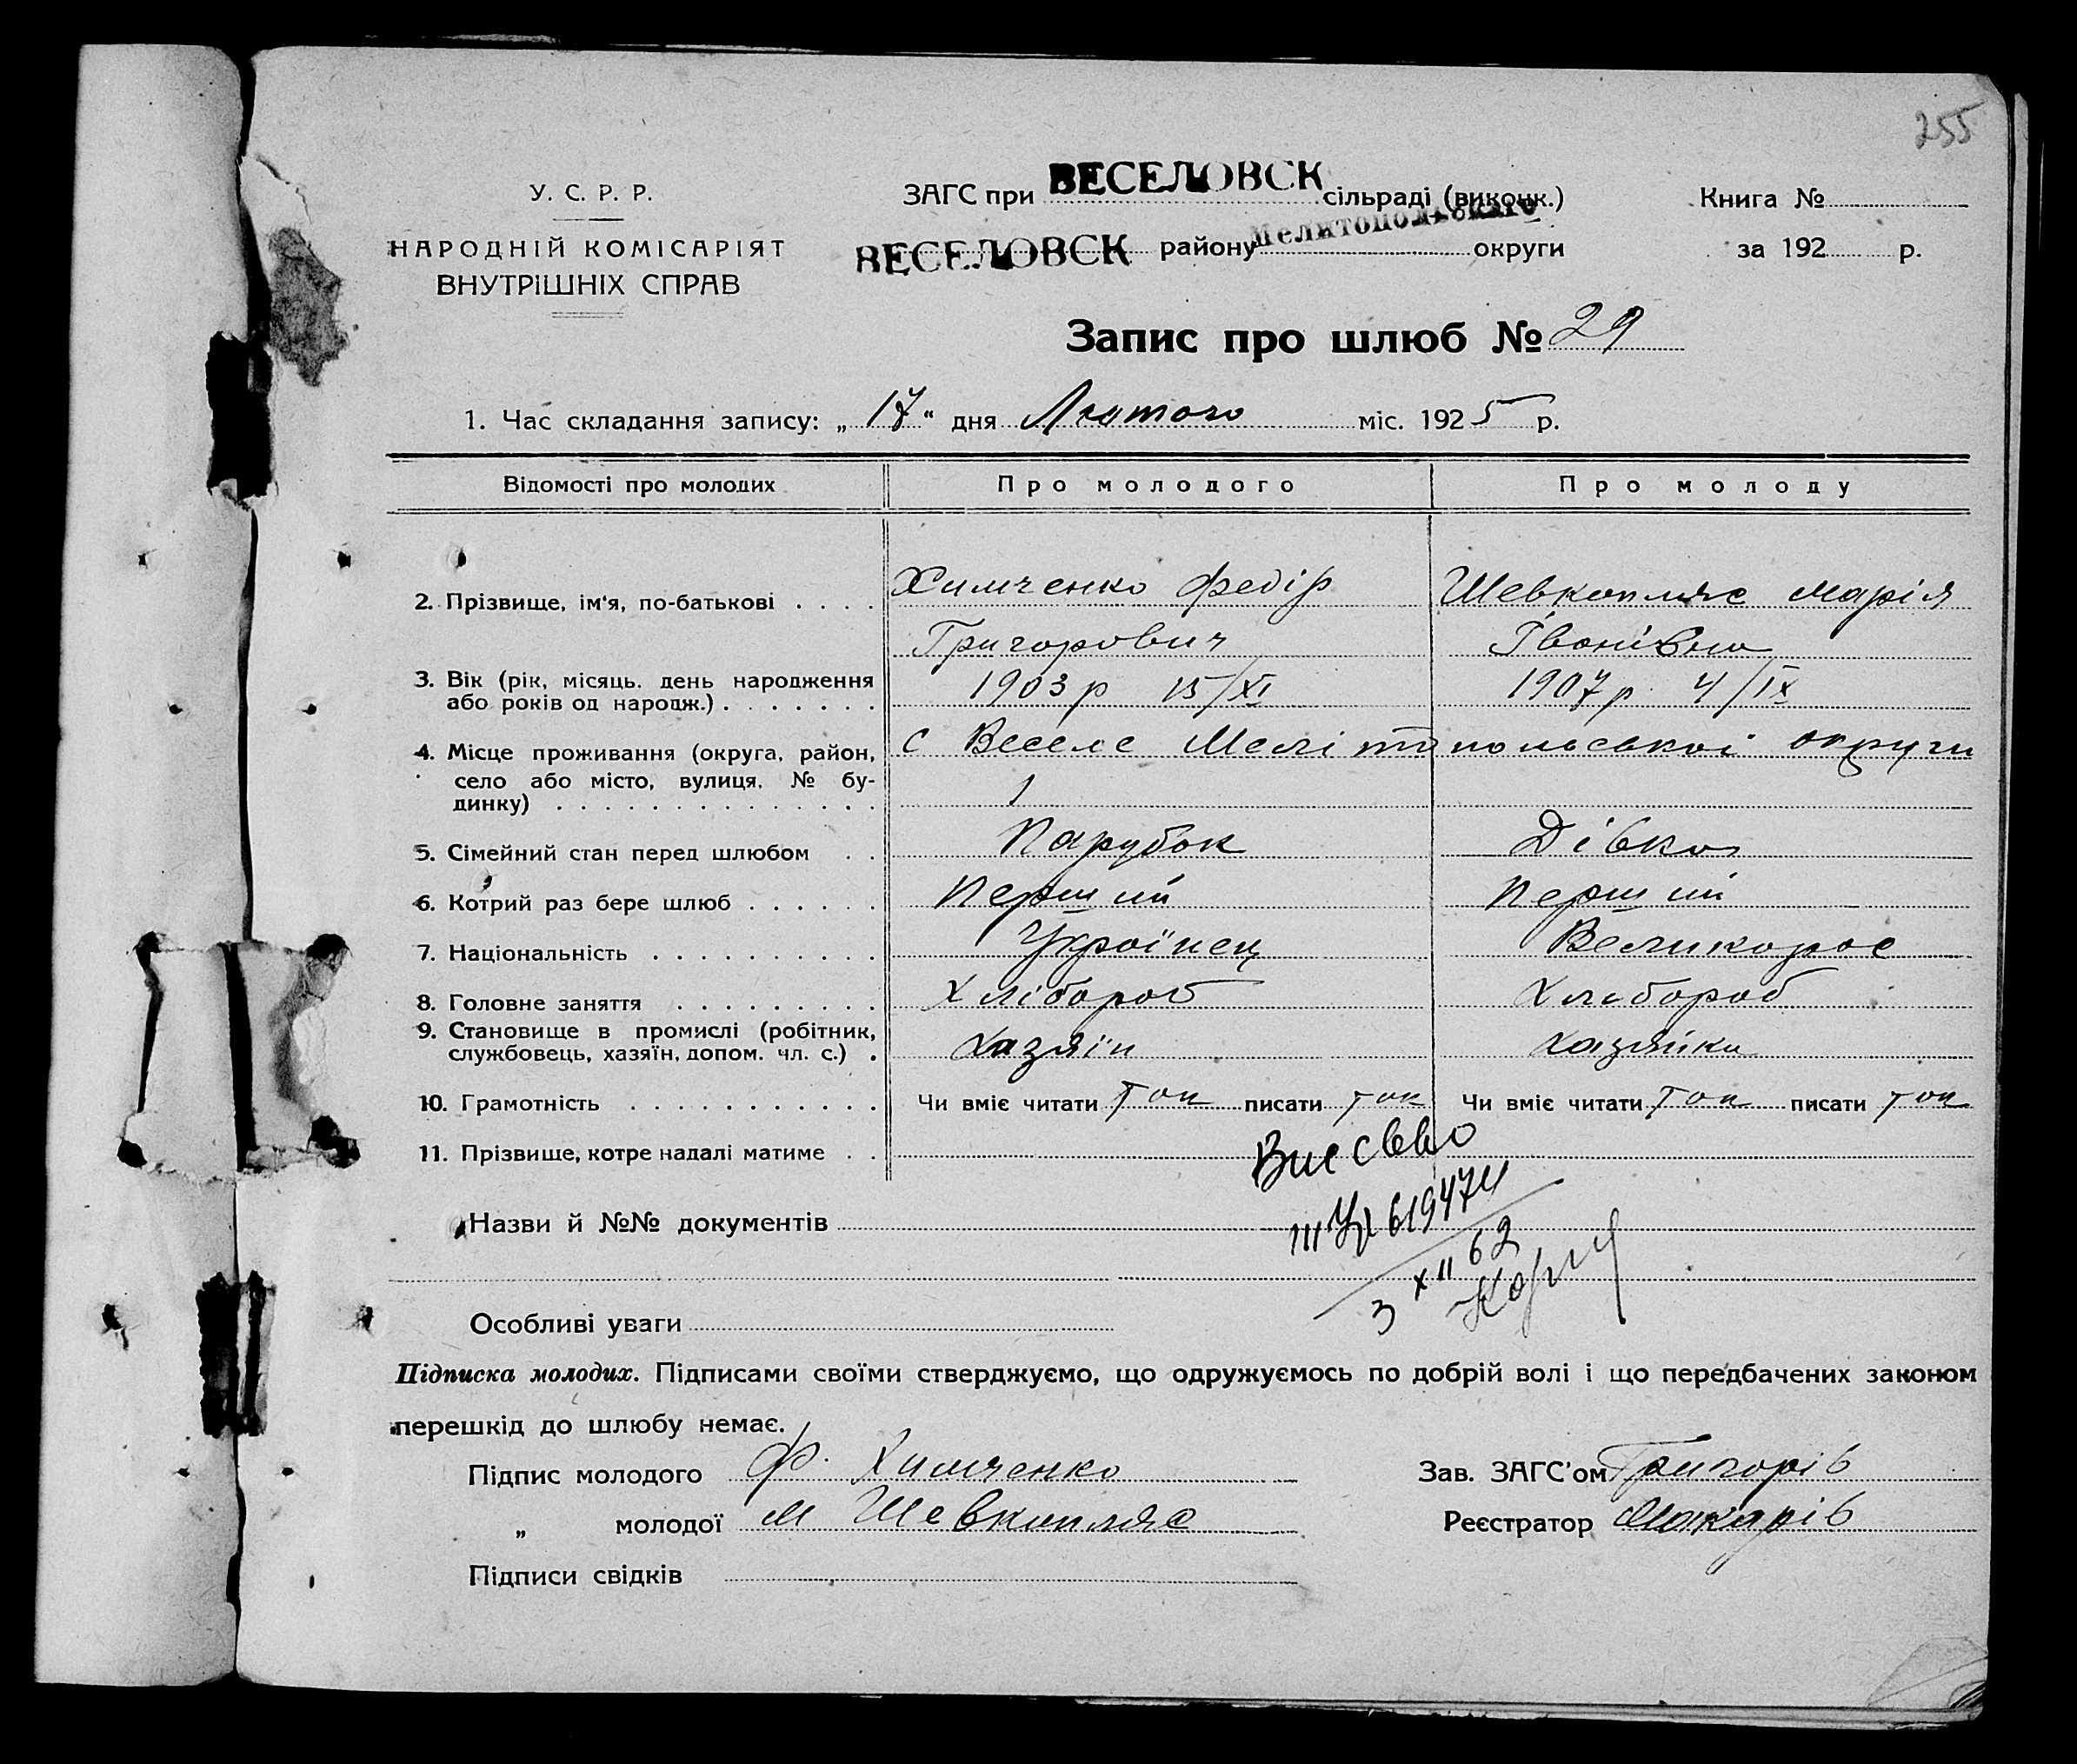 255
У. С. Р. Р.
НАРОДНІЙ КОМІСАРІЯТ
ВНУТРІШНІХ СПРАВ
ЗАГС при ВЕСЕЛОВСК сільраді (виконк.)
ВЕСЕЛОВСК району Мелитопольскаго округи
Книга №
за 192 р.
Запис про шлюб № 29
1. Час складання запису: „ 17 “ дня Лютого міс. 1925 р.
Відомості про молодих Про молодого Про молоду
2. Прізвище, ім'я, по-батькові . . . . Химченко Федір Шевкопляс Марія
Григорович Іванівна
3. Вік (рік, місяць, день народження 1903 р 15/XI 1907 р. 4/IX
або років од народж.) . . . . . . .
4. Місце проживання (округа, район, с Веселе Мелітопольської округи
село або місто, вулиця, № бу-
динку) . . . . . . . . . . . . . .
5. Сімейний стан перед шлюбом . . Парубок Дівка
6. Котрий раз бере шлюб . . . . . . Перший Перший
7. Національність . . . . . . . . . . Українец Великорос
8. Головне заняття . . . . . . . . . Хлібороб Хлібороб
9. Становище в промислі (робітник,
службовець, хазяїн, допом. чл. с.) . Хазяїн хазяйка
10. Грамотність . . . . . . . . . . . Чи вміє читати так писати так Чи вміє читати так писати так
11. Прізвище, котре надалі матиме . .
Назви й №№ документів
619474
3 XII 62
Особливі уваги
Підписка молодих. Підписами своїми стверджуємо, що одружуємось по добрій волі і що передбачених законом
перешкід до шлюбу немає.
Підпис молодого Ф. Химченко Зав. ЗАГС'ом Григорів
„ молодої М Шевкопляс Реєстратор Макарів
Підписи свідків